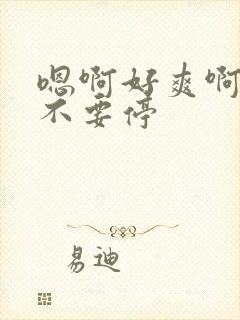 嗯啊好爽啊
不要停
易迪